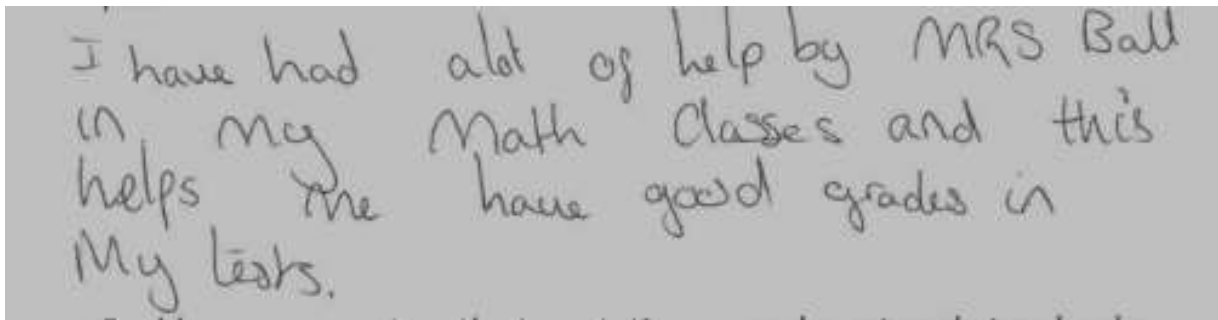 I have had alot of help by MRS Ball
in my Math Classes and this
helps me have good grades in
My tests.